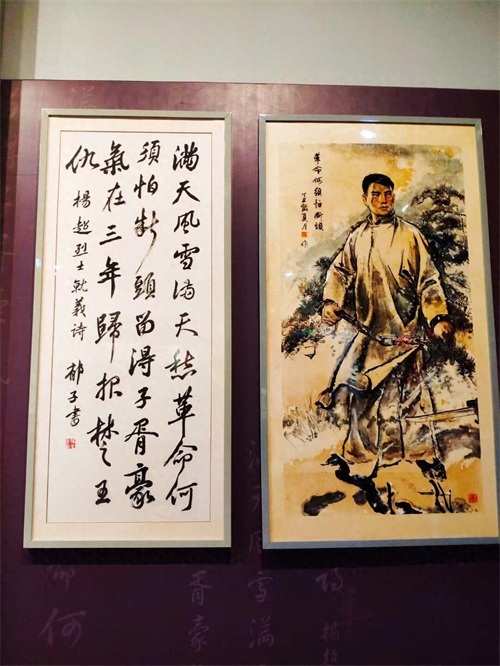 滿天風雪滿天愁革命何
須怕斷頭留得子胥豪
氣在三年歸报楚王
仇 楊超烈士就義詩 郁子書
革命何須怕斷頭
何
胥豪
風雪滿
楊超